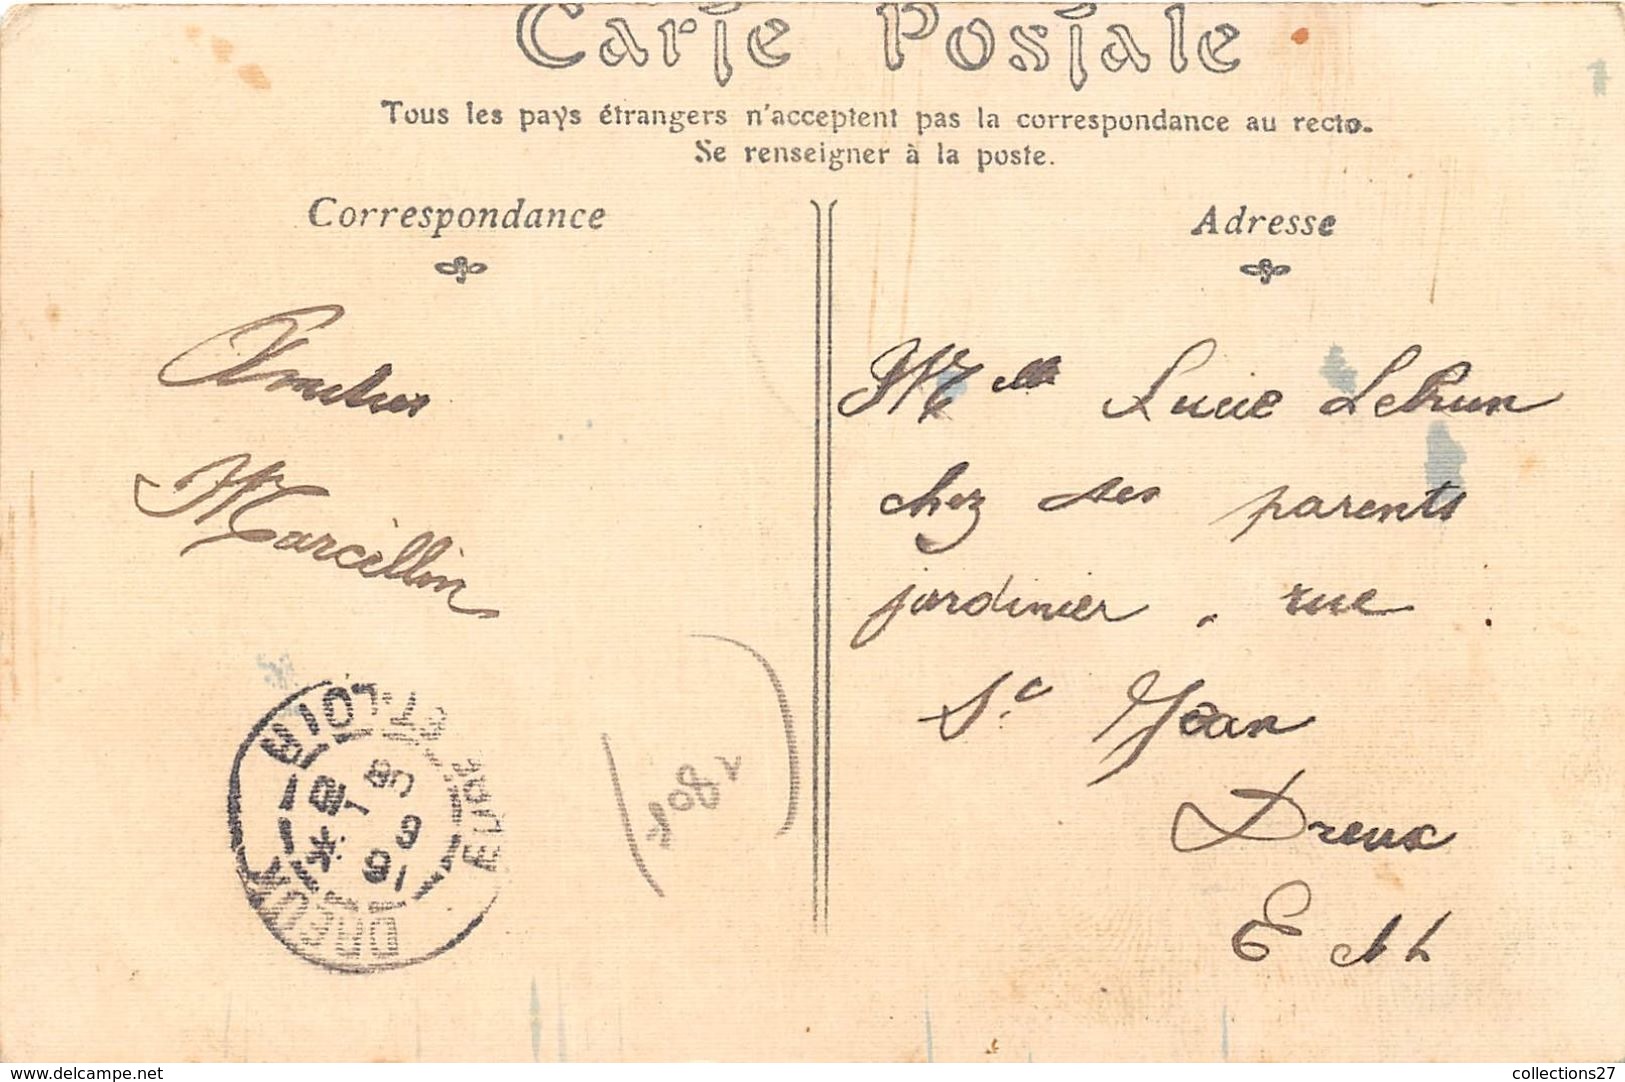 Carte Postale
Tous les pays étrangers n'acceptent pas la correspondance au recto.
Se renseigner à la poste.
Correspondance
Adresse
Amitiés
Marcellin
Melle Lucie Lebrun
chez ses parents
jardinier, rue
St Jean
Dreux
E et L
DREUX
EURE ET-LOIR
www.delcampe.net
collections27